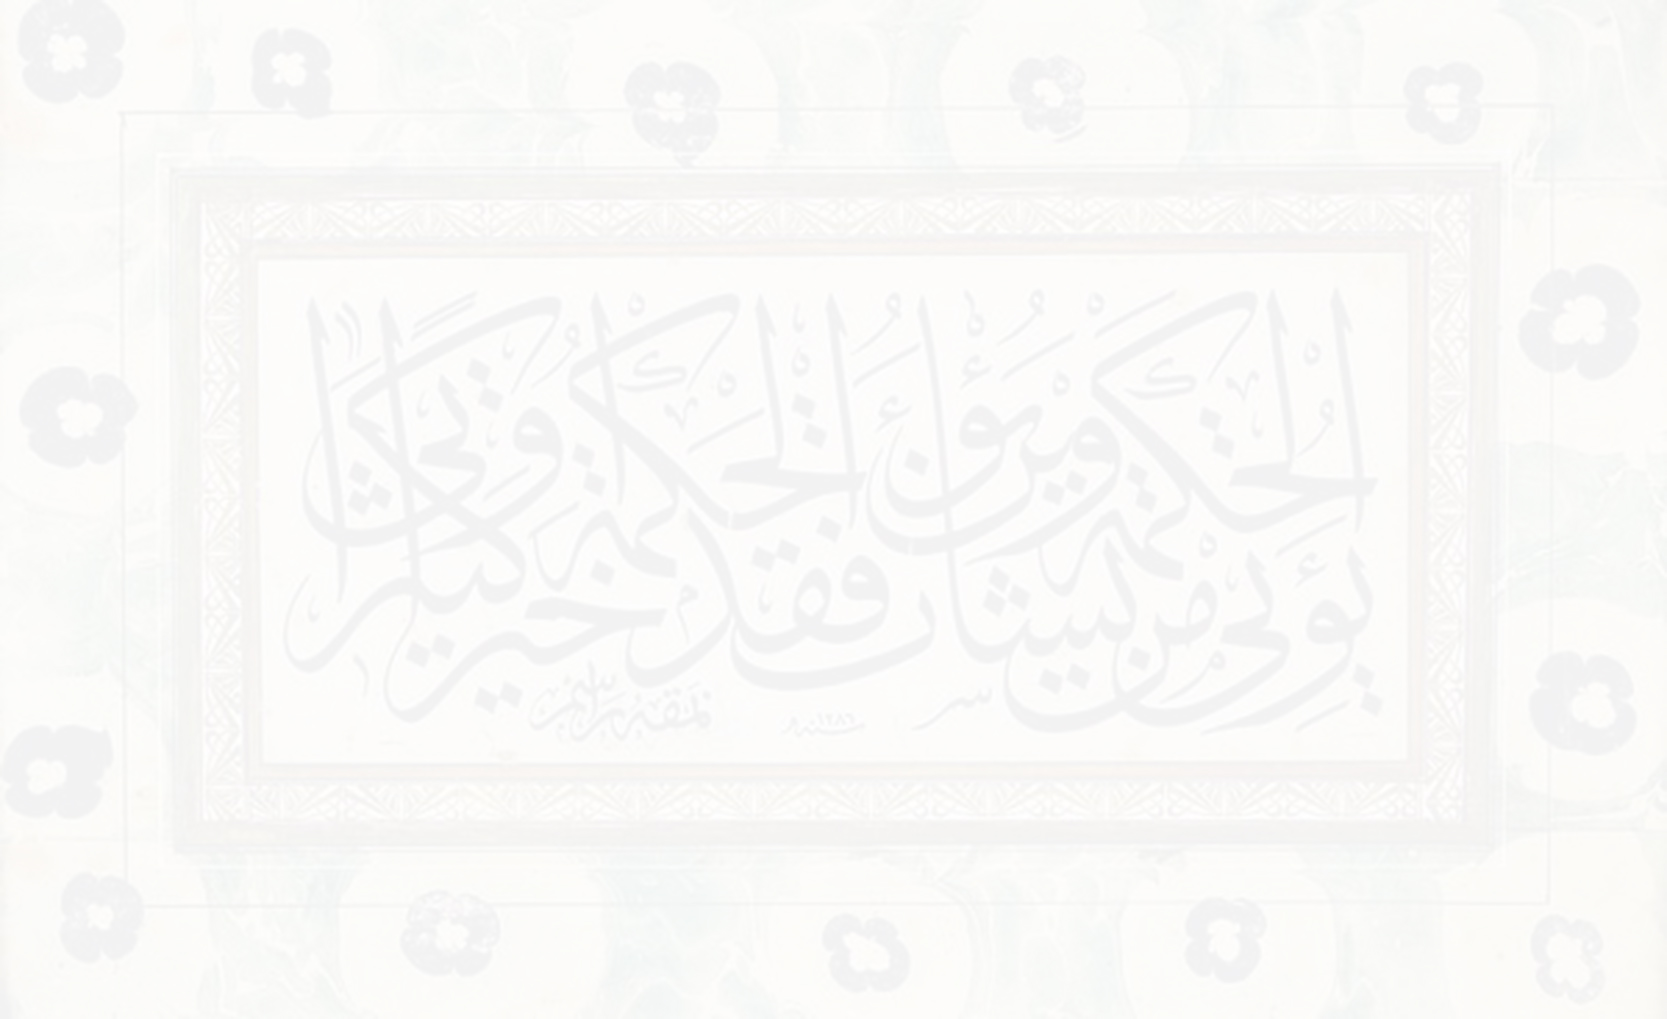 يؤتي الحكمة من يشاء ومن يؤت الحكمة فقد أوتي خيرا كثيرا
سنه ١٢٨٦